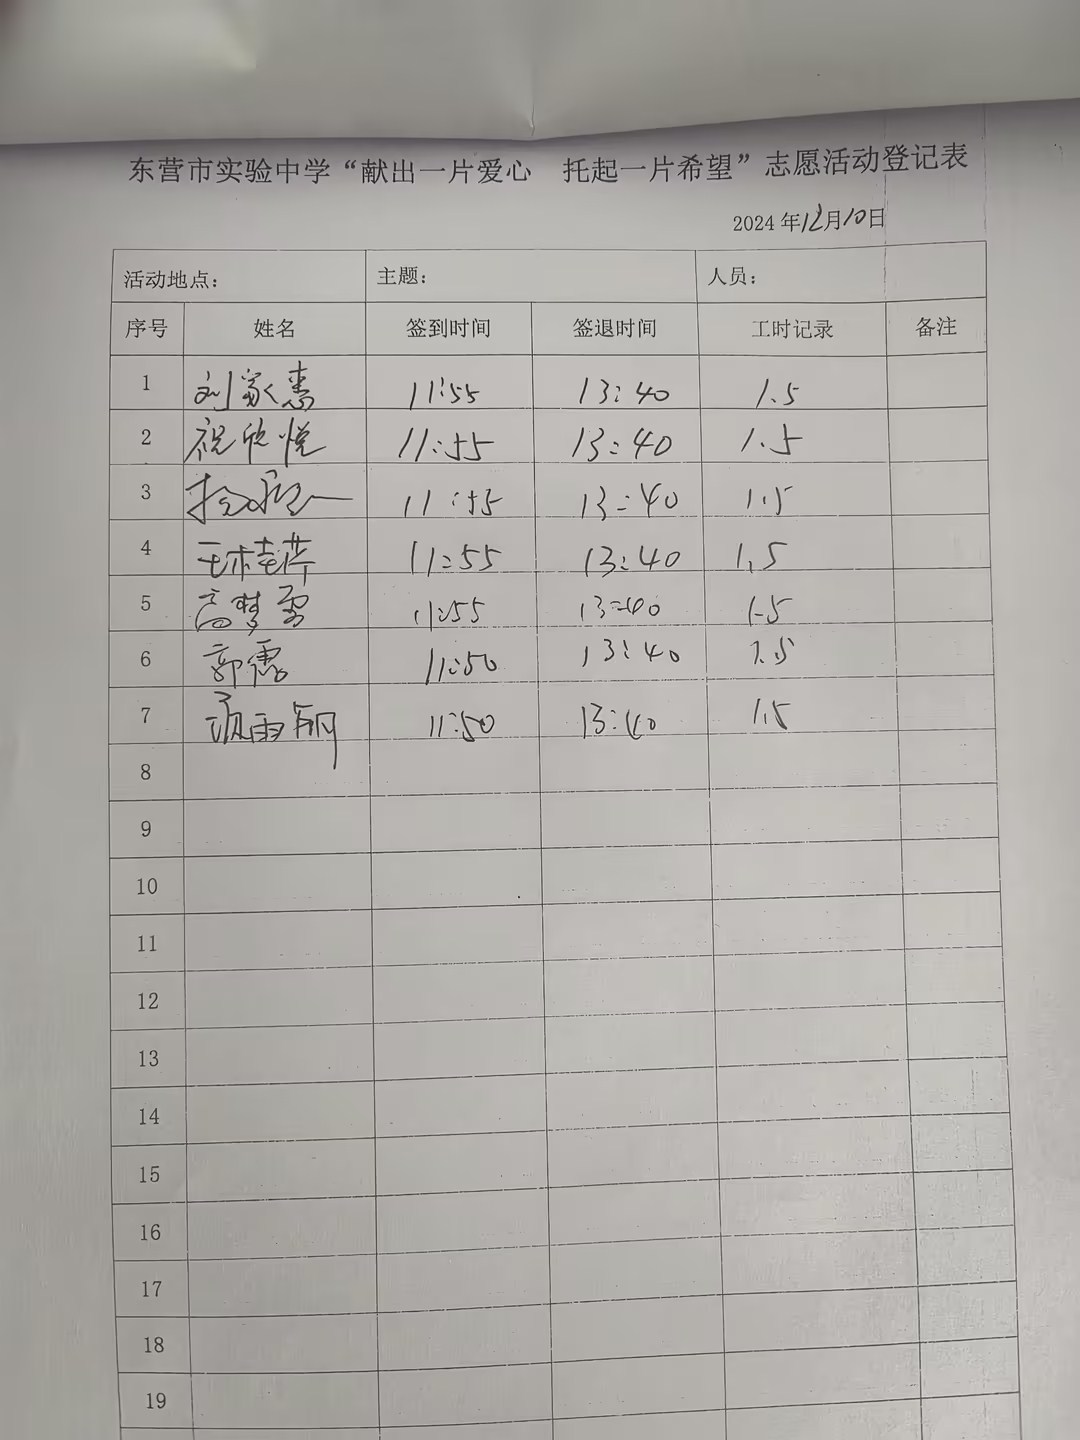 东营市实验中学“献出一片爱心 托起一片希望”志愿活动登记表
2024年12月10日
活动地点： 主题： 人员：
序号 姓名 签到时间 签退时间 工时记录 备注
1 刘家惠 11:55 13:40 1.5
2 祝欣悦 11:55 13:40 1.5
3 11:55 13:40 1.5
4 11:55 13:40 1.5
5 高梦雪 11:55 13:40 1.5
6 郭儒 11:50 13:40 1.5
7 11:50 13:40 1.5
8
9
10
11
12
13
14
15
16
17
18
19